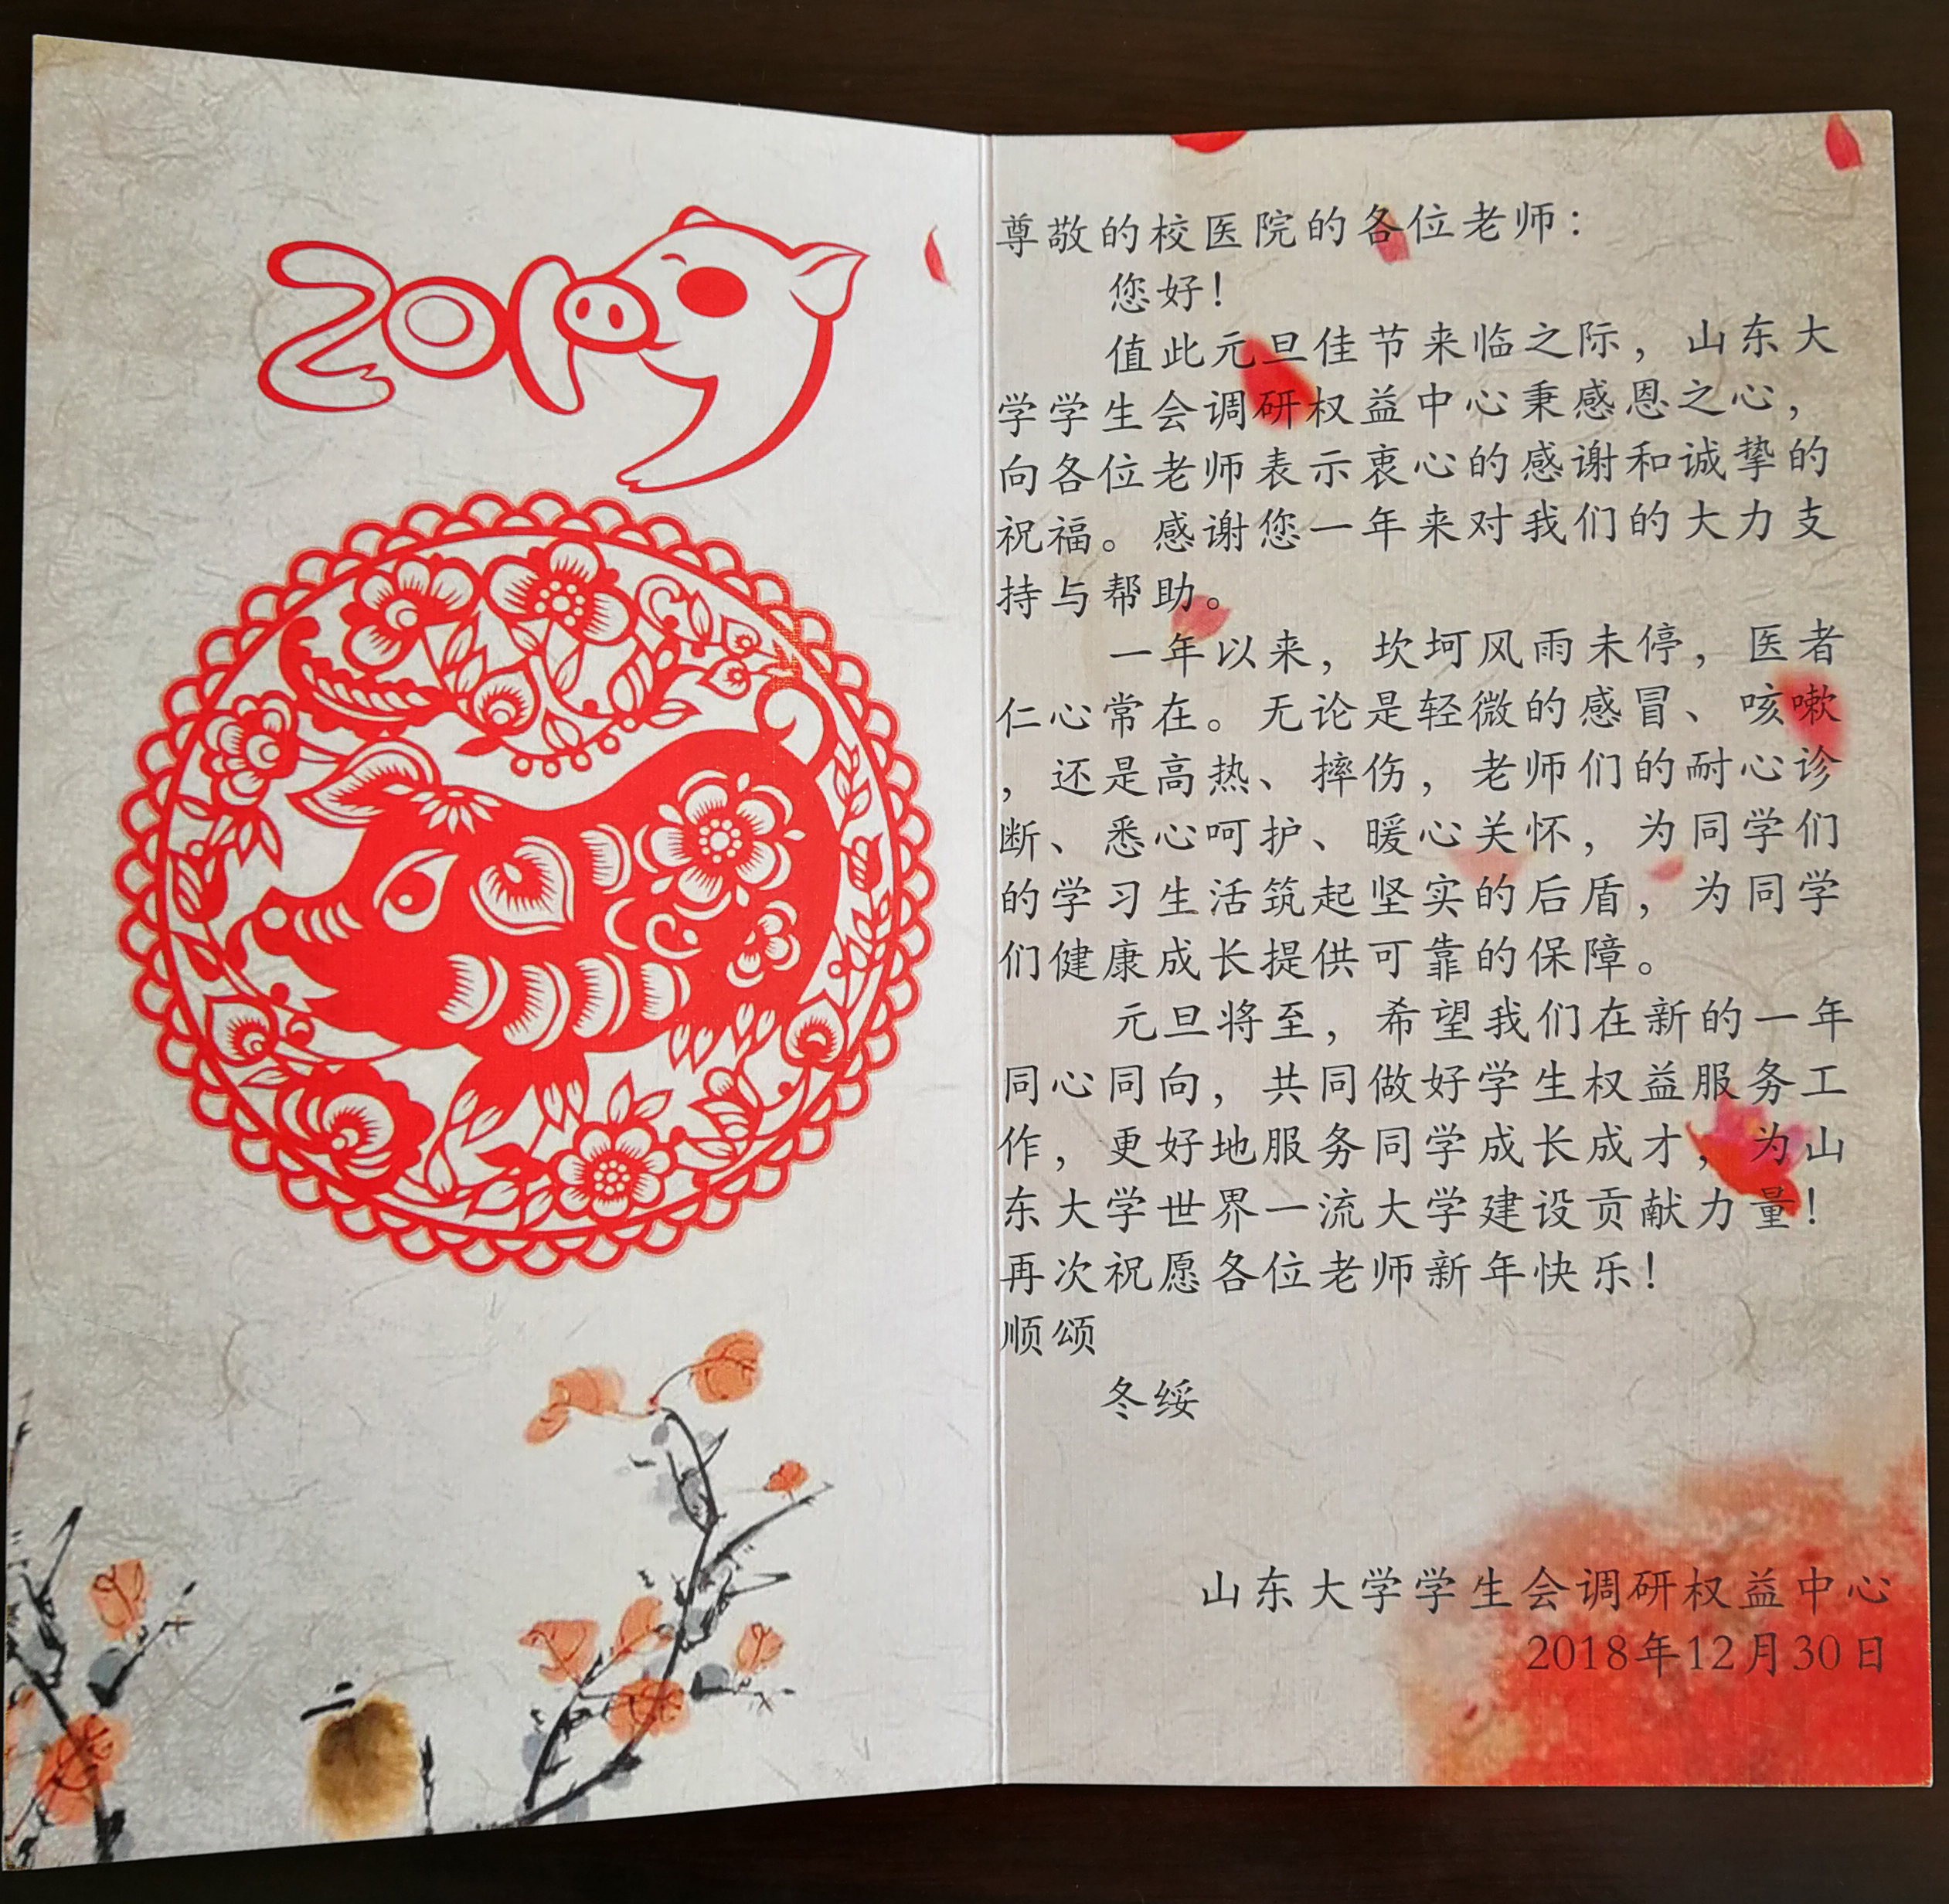 2019
尊敬的校医院的各位老师：
您好！
值此元旦佳节来临之际，山东大
学学生会调研权益中心秉感恩之心，
向各位老师表示衷心的感谢和诚挚的
祝福。感谢您一年来对我们的大力支
持与帮助。
一年以来，坎坷风雨未停，医者
仁心常在。无论是轻微的感冒、咳嗽
，还是高热、摔伤，老师们的耐心诊
断、悉心呵护、暖心关怀，为同学们
的学习生活筑起坚实的后盾，为同学
们健康成长提供可靠的保障。
元旦将至，希望我们在新的一年
同心同向，共同做好学生权益服务工
作，更好地服务同学成长成才，为山
东大学世界一流大学建设贡献力量！
再次祝愿各位老师新年快乐！
顺颂
冬绥
山东大学学生会调研权益中心
2018年12月30日